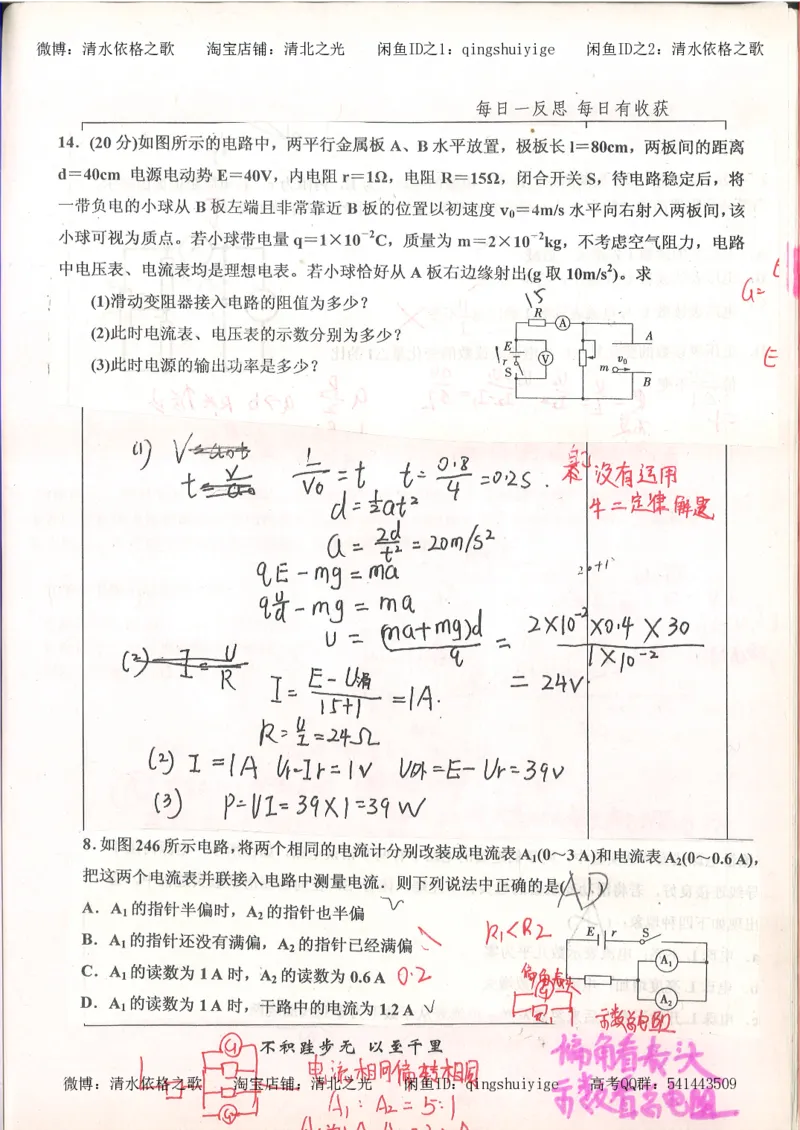 微博：清水依格之歌 淘宝店铺：清北之光 闲鱼ID之1：qingshuiyige 闲鱼ID之2：清水依格之歌
每日一反思 每日有收获
14．(20分)如图所示的电路中，两平行金属板 A、B 水平放置，极板长 l＝80cm，两板间的距离
d＝40cm 电源电动势 E＝40V，内电阻 r＝1Ω，电阻 R＝15Ω，闭合开关 S，待电路稳定后，将
一带负电的小球从 B 板左端且非常靠近 B 板的位置以初速度 v₀＝4m/s 水平向右射入两板间，该
小球可视为质点。若小球带电量 q＝1×10⁻²C，质量为 m＝2×10⁻²kg，不考虑空气阻力，电路
中电压表、电流表均是理想电表。若小球恰好从 A 板右边缘射出(g 取 10m/s²)。求
(1)滑动变阻器接入电路的阻值为多少？
(2)此时电流表、电压表的示数分别为多少？
(3)此时电源的输出功率是多少？
G=
E
15
R A
E r S V
A
v₀
m
B
(1)
L/V₀ = t t = 0.8/4 = 0.2S．
d = ½at²
a = 2d/t² = 20m/s²
qE - mg = ma
q u/d - mg = ma
u = (ma+mg)d/q = 2×10⁻²×0.4×30/1×10⁻²
= 24V
没有运用
牛二定律解题
20+1
I = E-U滑/15+1 = 1A.
R = u/I = 24Ω
(2) I = 1A Ur=Ir=1V U外=E-Ur=39V
(3) P=UI=39×1=39W
8.如图246所示电路，将两个相同的电流计分别改装成电流表A₁(0～3 A)和电流表A₂(0～0.6 A)，
把这两个电流表并联接入电路中测量电流．则下列说法中正确的是(AD)
A．A₁的指针半偏时，A₂的指针也半偏
B．A₁的指针还没有满偏，A₂的指针已经满偏
C．A₁的读数为 1 A 时，A₂的读数为 0.6 A 0.2
D．A₁的读数为 1 A 时，干路中的电流为 1.2 A √
R₁<R₂
E r S
A₁
A₂
偏角看表头
示数看总电阻
不积跬步无 以至千里
G
G
电流相同偏转相同
A₁：A₂=5:1
偏角看表头
示数看总电阻
微博：清水依格之歌 淘宝店铺：清北之光 闲鱼ID：qingshuiyige 高考QQ群：541443509